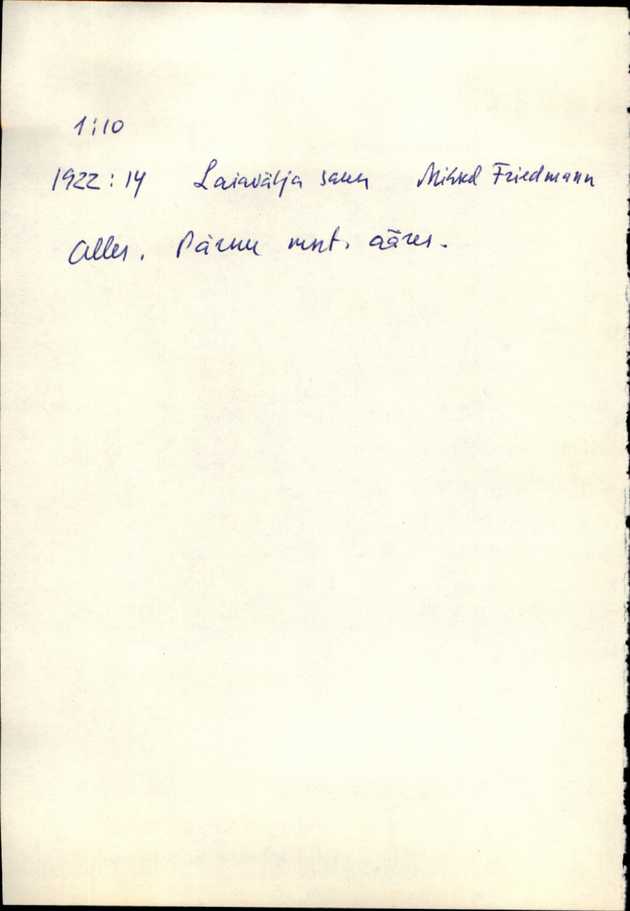 1:10
1922:14 Laiavälja saun Mihkel Friedmann
Alles. Pärnu mnt. ääres.